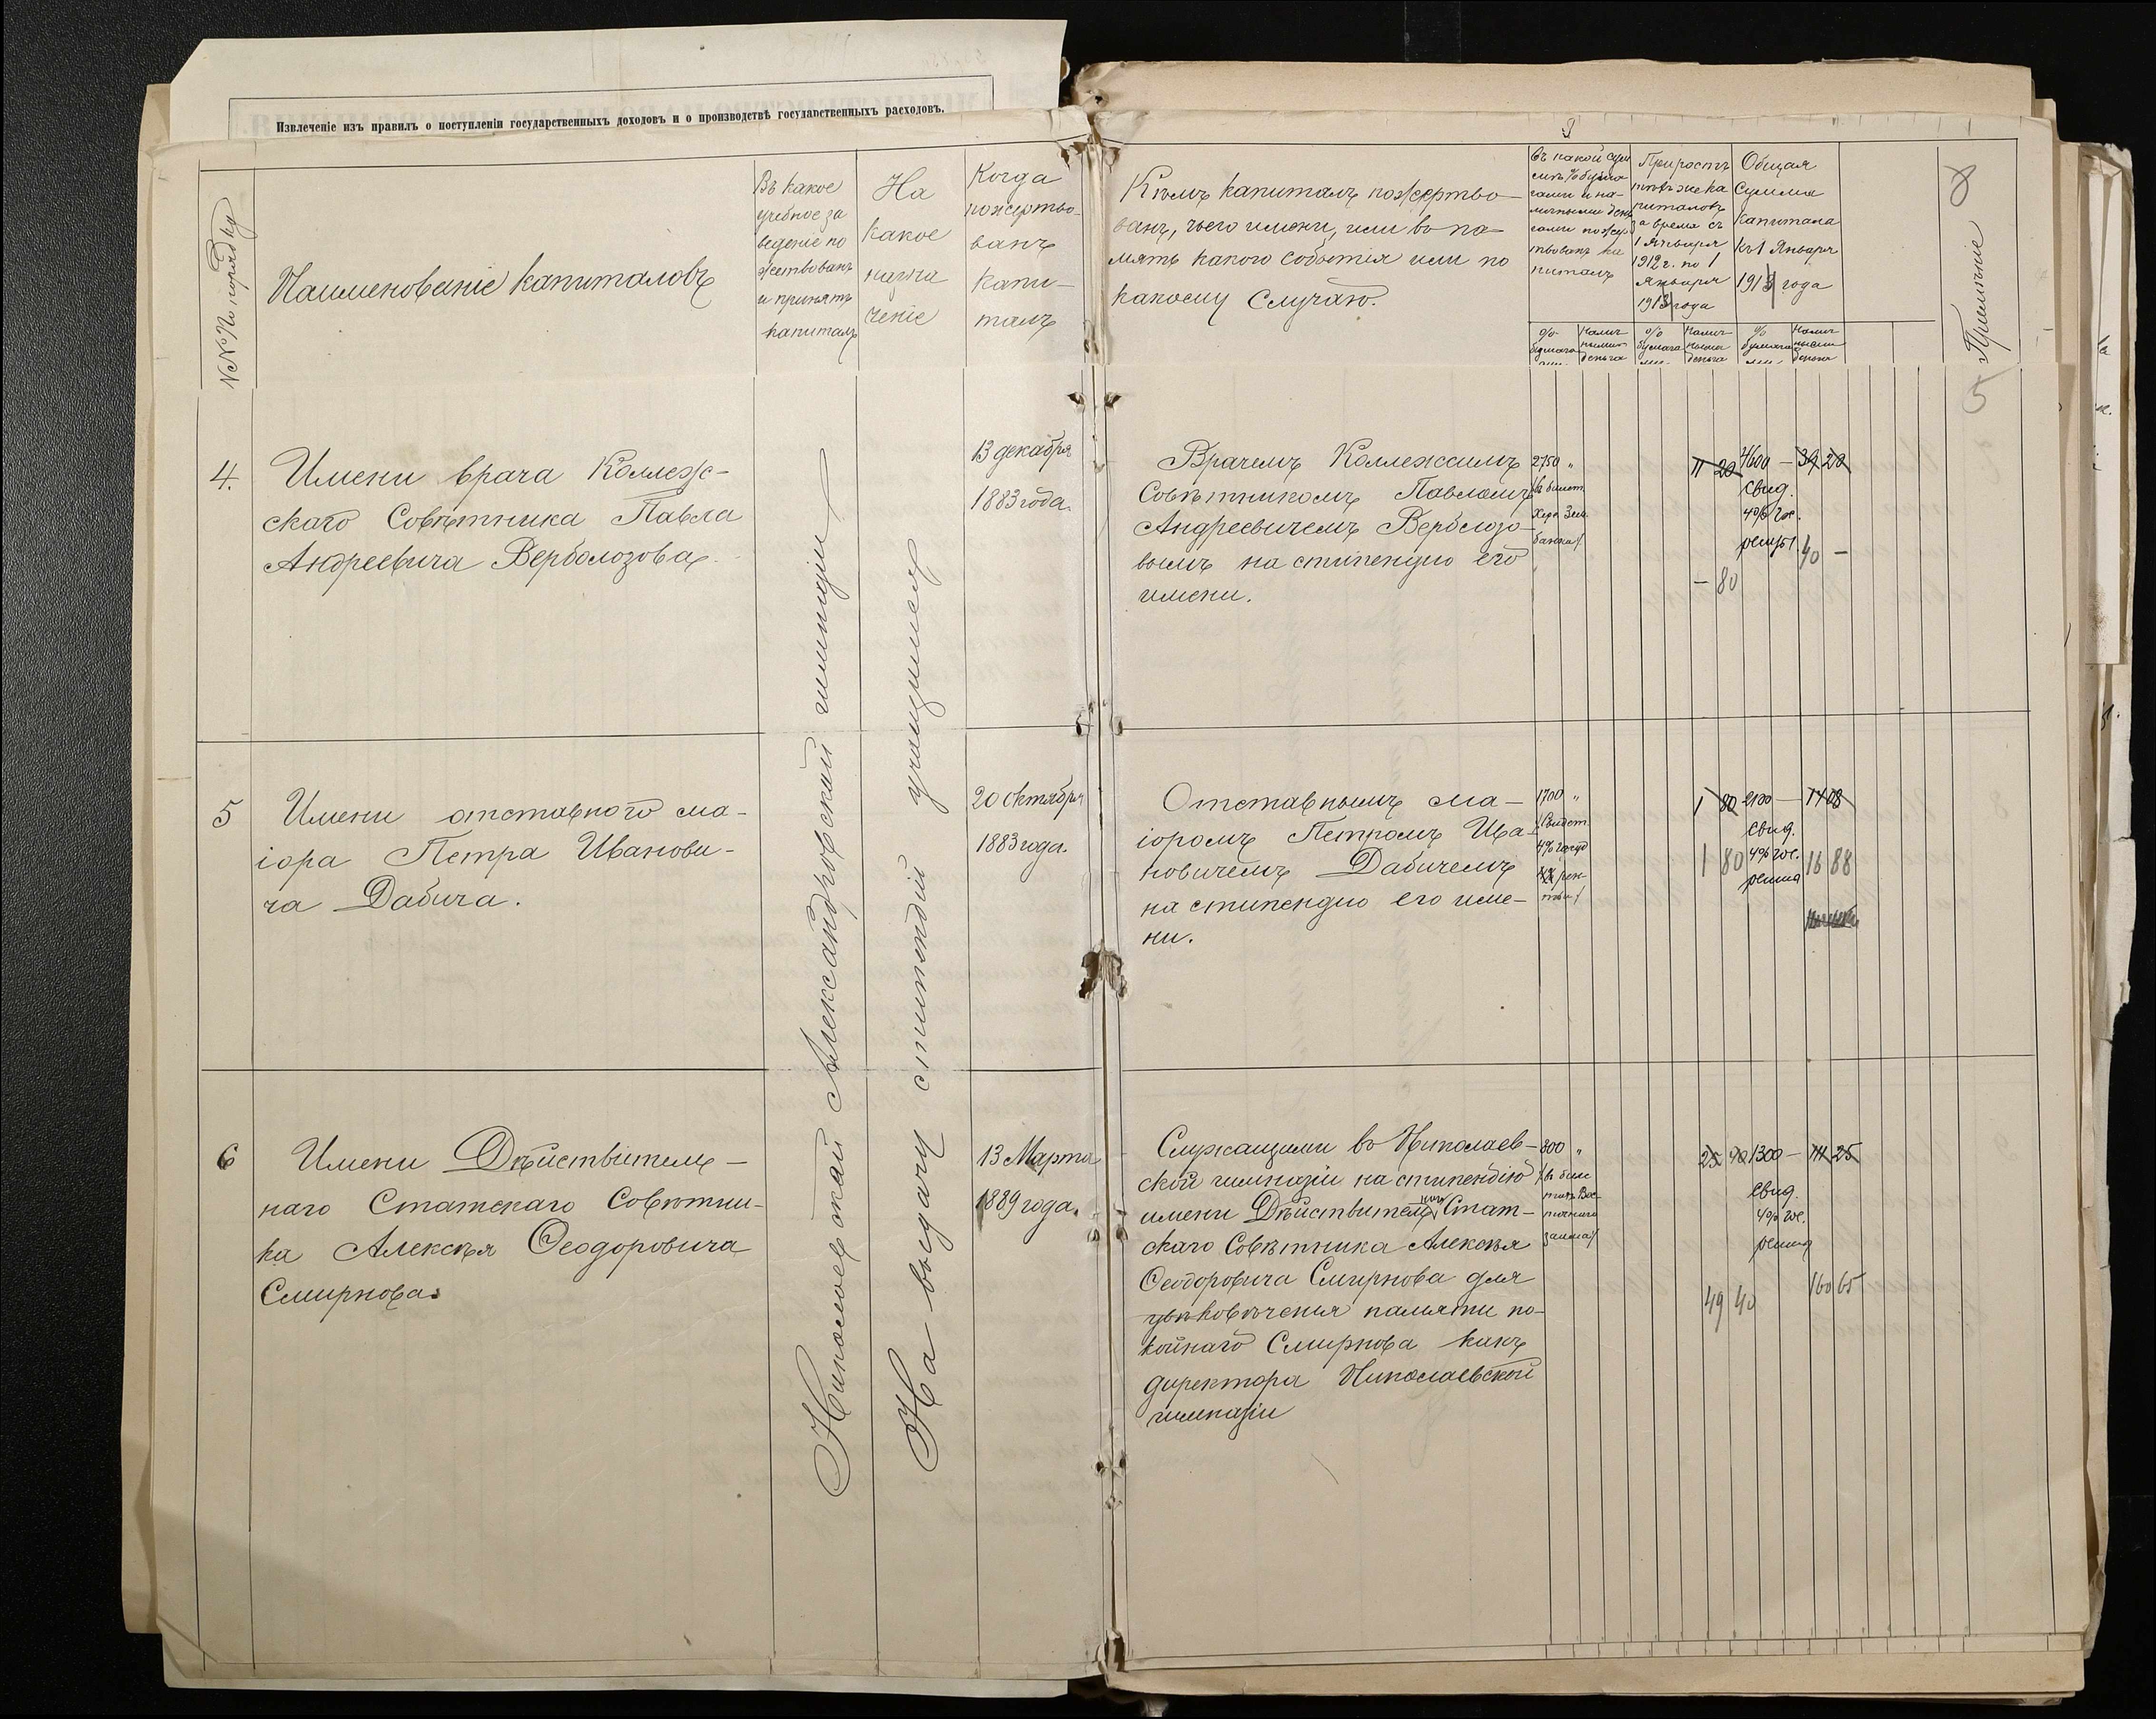 Извлеченіе изъ правилъ о поступленіи государственныхъ доходовъ и о производствѣ государственныхъ расходовъ.
№№ По порядку
Наименованіе капиталовъ
Въ какое
учебное за
веденіе по
жертвованъ
и принятъ
капиталъ
На
какое
назна
ченіе
Когда
пожертво-
ванъ
капи-
талъ
Кѣмъ капиталъ пожертво-
ванъ, чьего имени, или въ па-
мять какого событія или по
какому случаю.
въ какой сум
мѣ % бума-
гами и на-
личными день
гами пожер
твованъ ка
питалъ
Приростъ
тѣхъ же ка
питаловъ
за время съ
1 Января
1912 г. по 1
Января
1913 года
Общая
Сумма
Капитала
къ 1 Января
1913 года
%
бумага
ми
Налич
ными
деньга
%
бумага
ми
Налич
ными
деньга
%
бумагами
Налич
ными
деньга
Примѣчніе
8
5
4.
Имени врача Коллеж-
скаго Совѣтника Павла
Андреевича Верболозова
13 декабря
1883 года.
Врачемъ Коллежскимъ
Совѣтникомъ Павломъ
Андреевичемъ Верболозо-
вымъ на стипендію его
имени.
2750 "
(въ билет.
Херс. Зем.
банка)
11 20
4600 — 39 20
свид.
4% гос.
ренты.
40 —
— 80
5
Имени отставного ма-
іора Петра Иванови-
ча Дабича.
20 октября
1883 года.
Отставнымъ ма-
іоромъ Петромъ Ива-
новичемъ Дабичемъ
на стипендію его име-
ни.
1700 "
(Свидет.
4% госуд
рен-
ты)
1 80 2100 — 14 08
свид.
1 80 4% гос. 16 88
рента
6
Имени Дѣйствитель-
наго Статскаго Совѣтни-
ка Алексѣя Ѳеодоровича
Смирнова.
13 Марта
1889 года.
Служащими въ Николаев-
ской гимназіи на стипендію
имени Дѣйствительнаго Стат-
скаго Совѣтника Алексѣя
Ѳеодоровича Смирнова для
увѣковѣченія памяти по-
койнаго Смирнова какъ
директора Николаевской
гимназіи
800 "
(въ биле
тахъ Вос
точнаго
займа)
25 40 1300 — 111 25
свид.
4% гос.
рента
49 40
160 65
Николаевской Александровской гимназіи
На выдачу стипендій учащимся